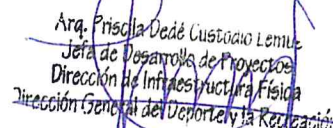 Arq. Priscila Dedé Custodio Lemus
Jefa de Desarrollo de Proyectos
Dirección de Infraestructura Física
Dirección General del Deporte y la Recreación